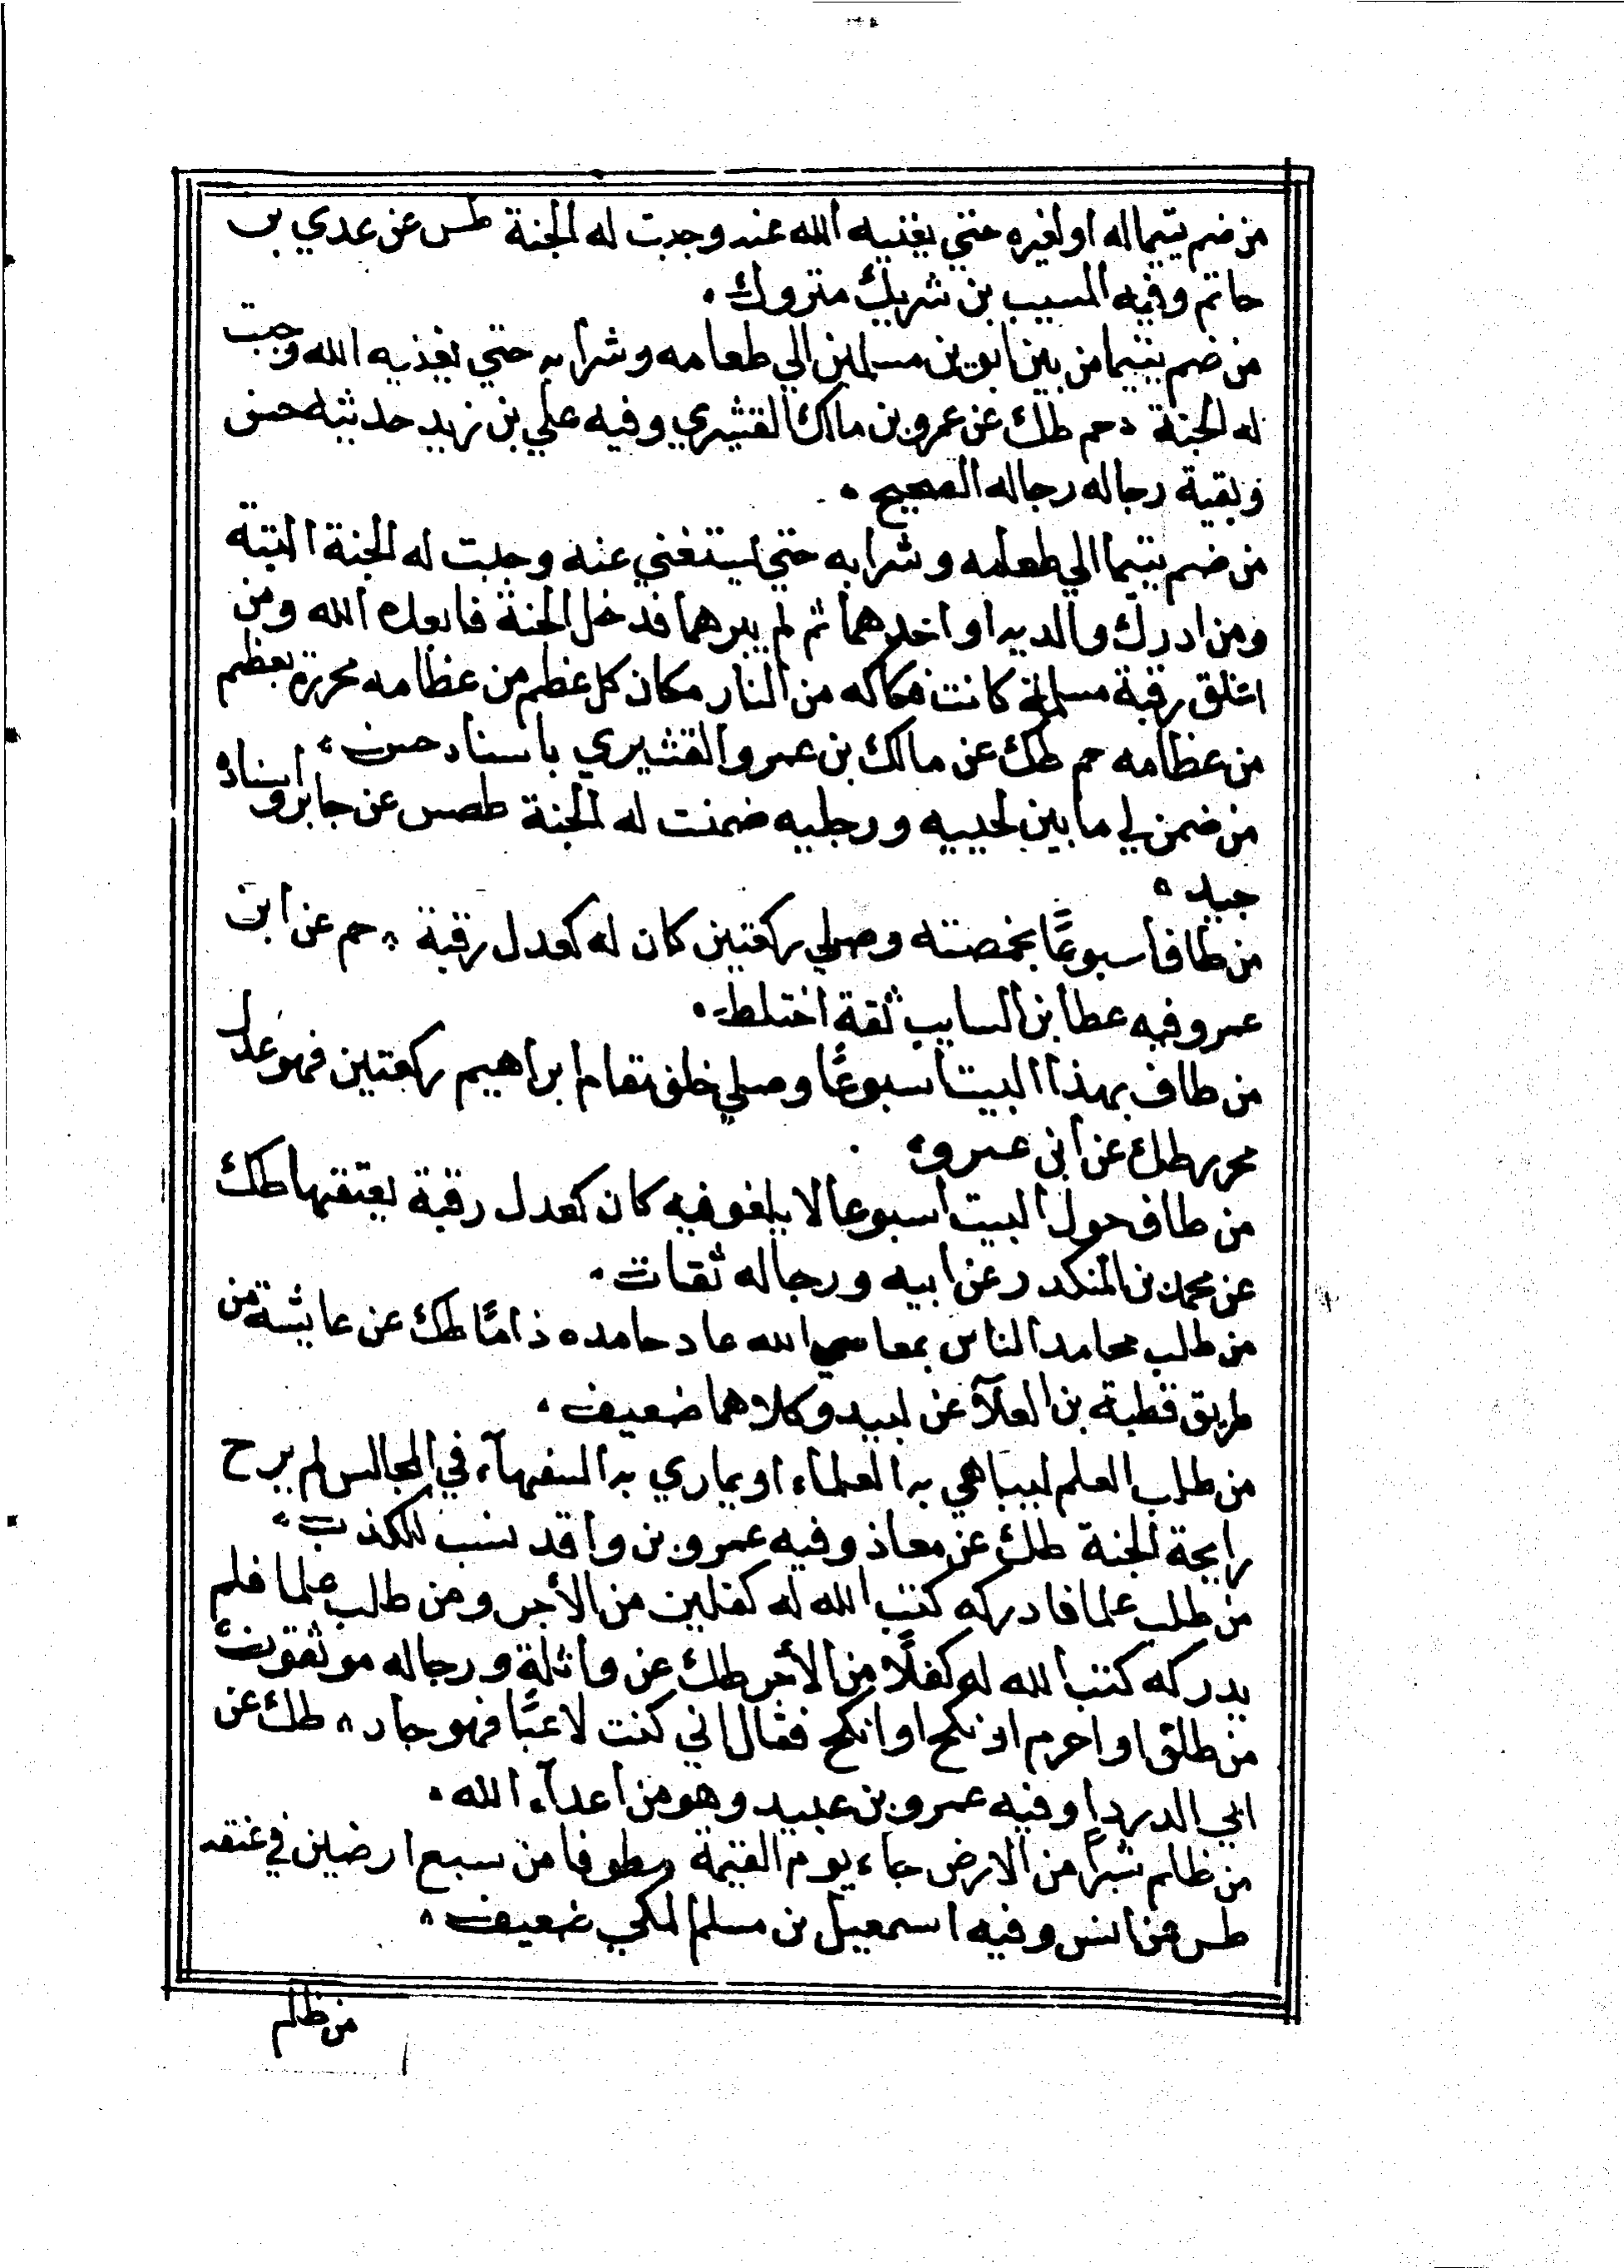 من ضم يتيما له او لغيره حتي يغنيه الله عنه وجبت له الجنة طس عن عدي بن
حاتم وفيه المسيب بن شريك متروك
من ضم يتيما من بين ابوين مسلمين الي طعامه وشرابه حتي يغذيه الله وجبت
له الجنة حم طك عن عمرو بن مالك القشيري وفيه علي بن زيد حديثه حسن
وبقية رجاله رجاله الصحيح
من ضم يتيما الي طعامه وشرابه حتي يستغني عنه وجبت له الجنة البتة
ومن ادرك والديه او احدهما ثم لم يبرهما فدخل الجنة فابعده الله ومن
اعتق رقبة مسلمة كانت فكاكه من النار مكان كل عظم من عظامه محررة بعظم
من عظامه حم طك عن مالك بن عمرو القشيري باسناد حسن
من ضمن لي ما بين لحييه ورجليه ضمنت له الجنة طصس عن جابر واسناده
جيد
من طاف اسبوعًا يحصيه وصلي ركعتين كان له كعدل رقبة حم عن ابن
عمرو فيه عطا بن السايب ثقة اختلط
من طاف بهذا البيت اسبوعًا وصلي خلف مقام ابراهيم ركعتين فهو عدل
محرر طك عن ابن عمرو
من طاف حول البيت اسبوعا لا يلغو فيه كان كعدل رقبة يعتقها طك
عن محمد بن المنكدر عن ابيه ورجاله ثقات
من طلب محامد الناس بمعاصي الله عاد حامده ذامًا طك عن عايشة من
طريق قطبة بن العلآ عن لبيد وكلاهما ضعيف
من طلب العلم ليباهي به العلماء او يماري به السفهآء في المجالس لم يرح
رايحة الجنة طك عن معاذ وفيه عمرو بن واقد نسب للكذب
من طلب علما فادركه كتب الله له كفلين من الأجر ومن طلب علما فلم
يدركه كتب الله له كفلًا من الأجر طك عن واثلة ورجاله موثقون
من طلق او احرم او نكح او انكح فقال اني كنت لاعبًا فهو جاد طك عن
ابي الدردا وفيه عمرو بن عبيد وهو من اعدآء الله
من ظلم شبرًا من الارض جاء يوم القيمة مطوقا من سبع ارضين في عنقه
طس عن انس وفيه اسمعيل بن مسلم المكي ضعيف
من ظلم